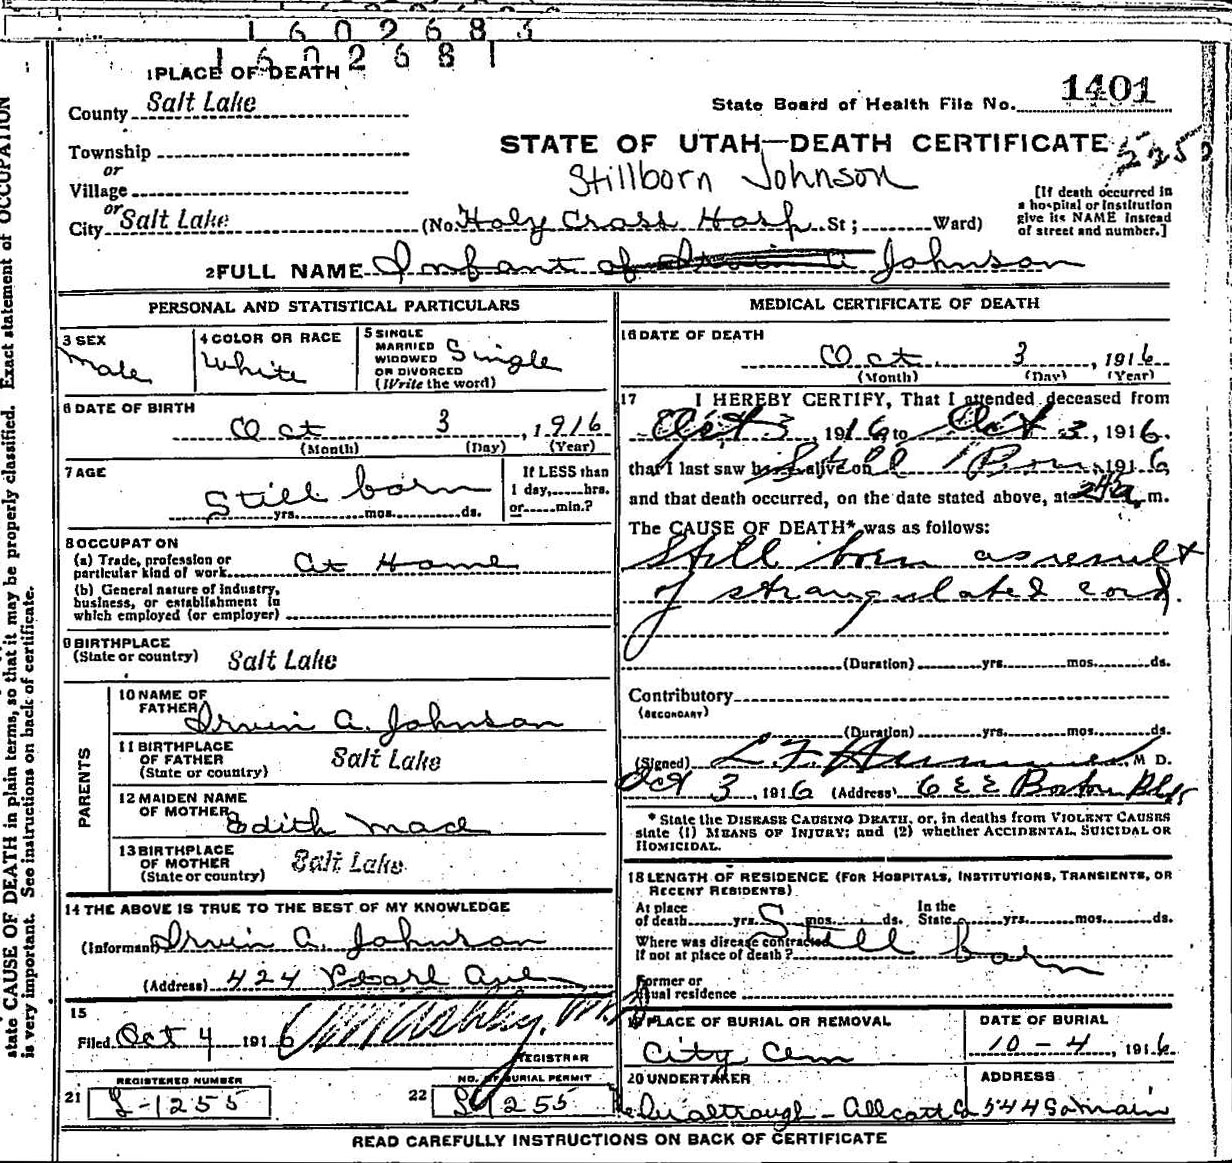 1602683
1602681
1 PLACE OF DEATH
County Salt Lake
State Board of Health File No. 1401
STATE OF UTAH—DEATH CERTIFICATE
Township
or
Village
or
City Salt Lake (No. Holy Cross Hosp. St; Ward)
Stillborn Johnson
[If death occurred in
a hospital or institution
give its NAME instead
of street and number.]
2 FULL NAME Infant of Irvin A Johnson
PERSONAL AND STATISTICAL PARTICULARS
3 SEX
Male
4 COLOR OR RACE
White
5 SINGLE
MARRIED
WIDOWED
OR DIVORCED
(Write the word)
Single
6 DATE OF BIRTH
Oct 3, 1916
(Month) (Day) (Year)
7 AGE
Still born
yrs. mos. ds.
If LESS than
1 day, hrs.
or min.?
8 OCCUPATON
(a) Trade, profession or
particular kind of work At Home
(b) General nature of industry,
business, or establishment in
which employed (or employer)
9 BIRTHPLACE
(State or country) Salt Lake
PARENTS
10 NAME OF
FATHER Irvin A. Johnson
11 BIRTHPLACE
OF FATHER
(State or country) Salt Lake
12 MAIDEN NAME
OF MOTHER Edith
13 BIRTHPLACE
OF MOTHER
(State or country) Salt Lake
14 THE ABOVE IS TRUE TO THE BEST OF MY KNOWLEDGE
(Informant) Irvin A. Johnson
(Address) 424 Pearl Ave
15
Filed Oct 4 1916
REGISTRAR
REGISTERED NUMBER
21 L-1255
NO. OF BURIAL PERMIT
22 1255
MEDICAL CERTIFICATE OF DEATH
16 DATE OF DEATH
Oct. 3, 1916
(Month) (Day) (Year)
17 I HEREBY CERTIFY, That I attended deceased from
Oct 3, 1916, to Oct 3, 1916.
that I last saw h alive on Still Born, 1916
and that death occurred, on the date stated above, at m.
The CAUSE OF DEATH* was as follows:
Still born as result
of strangulated cord.
(Duration) yrs. mos. ds.
Contributory
(SECONDARY)
(Duration) yrs. mos. ds.
(Signed) L. F. M D.
Oct 3, 1916 (Address) Boston Bldg
* State the DISEASE CAUSING DEATH, or, in deaths from VIOLENT CAUSES
state (1) MEANS OF INJURY; and (2) whether ACCIDENTAL, SUICIDAL OR
HOMICIDAL.
18 LENGTH OF RESIDENCE (FOR HOSPITALS, INSTITUTIONS, TRANSIENTS, OR
RECENT RESIDENTS)
At place
of death yrs. mos. ds.
In the
State yrs. mos. ds.
Where was disease contracted
If not at place of death? Still Born
Former or
usual residence
19 PLACE OF BURIAL OR REMOVAL
City Cem
DATE OF BURIAL
10-4, 1916.
20 UNDERTAKER
ADDRESS
544 So Main
READ CAREFULLY INSTRUCTIONS ON BACK OF CERTIFICATE
state CAUSE OF DEATH in plain terms, so that it may be properly classified. Exact statement of OCCUPATION
is very important. See instructions on back of certificate.